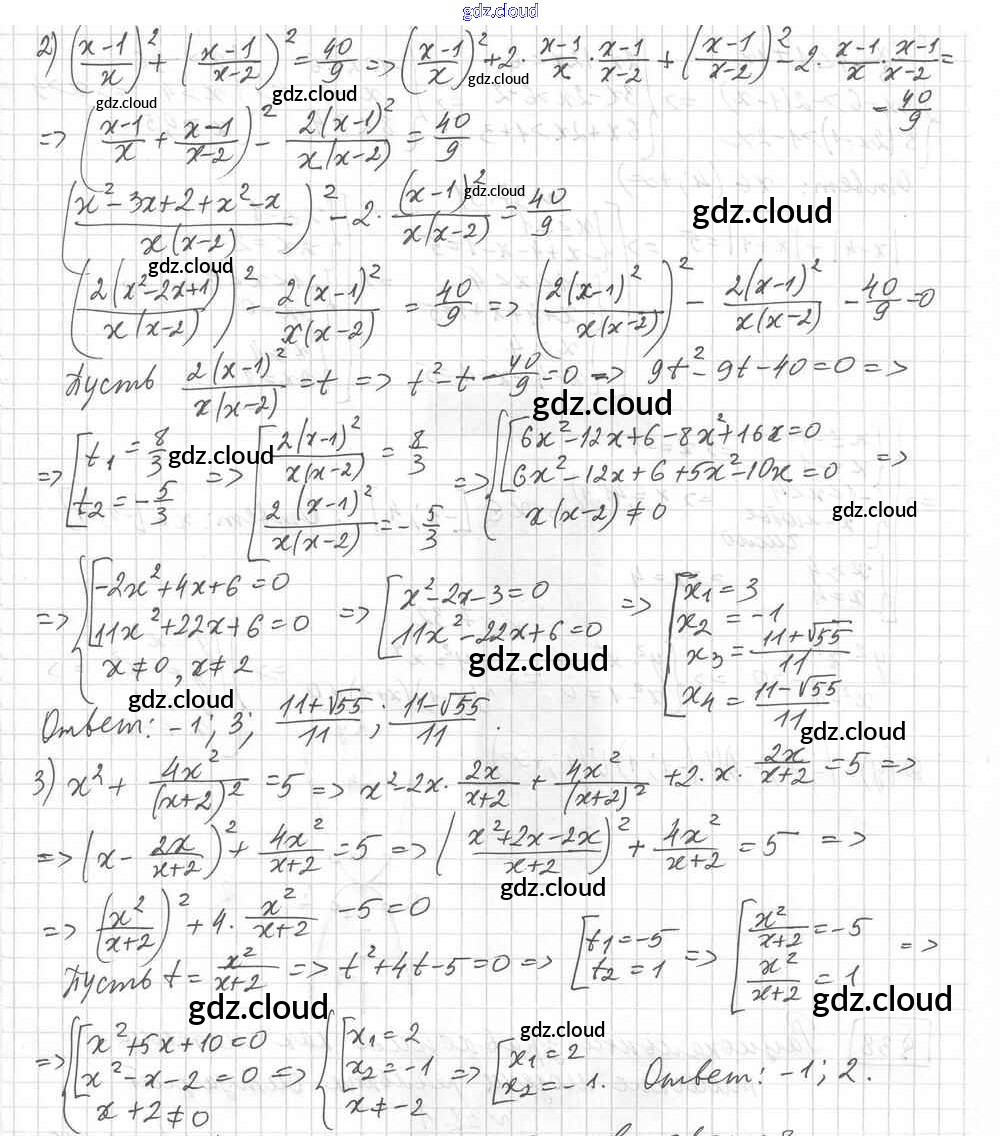 gdz.cloud
2) ((x-1)/x)² + ((x-1)/(x-2))² = 40/9 => ((x-1)/x)² + 2· (x-1)/x · (x-1)/(x-2) + ((x-1)/(x-2))² - 2· (x-1)/x · (x-1)/(x-2) =
= 40/9
gdz.cloud gdz.cloud gdz.cloud
=> ((x-1)/x + (x-1)/(x-2))² - 2(x-1)²/(x(x-2)) = 40/9
((x²-3x+2+x²-x)/(x(x-2)))² - 2· (x-1)²/(x(x-2)) = 40/9
gdz.cloud gdz.cloud gdz.cloud
(2(x²-2x+1)/(x(x-2)))² - 2(x-1)²/(x(x-2)) = 40/9 => (2(x-1)²/(x(x-2)))² - 2(x-1)²/(x(x-2)) - 40/9 = 0
Пусть 2(x-1)²/(x(x-2)) = t => t² - t - 40/9 = 0 => 9t² - 9t - 40 = 0 =>
gdz.cloud
=> [t₁ = 8/3 t₂ = -5/3 => [2(x-1)²/(x(x-2)) = 8/3 2(x-1)²/(x(x-2)) = -5/3 => {[6x²-12x+6-8x²+16x=0 6x²-12x+6+5x²-10x=0 x(x-2)≠0 =>
gdz.cloud gdz.cloud
=> {[-2x²+4x+6=0 11x²+22x+6=0 x≠0, x≠2 => [x²-2x-3=0 11x²-22x+6=0 => [x₁=3 x₂=-1 x₃=(11+√55)/11 x₄=(11-√55)/11
gdz.cloud gdz.cloud gdz.cloud
Ответ: -1; 3; (11+√55)/11; (11-√55)/11.
3) x² + 4x²/(x+2)² = 5 => x² - 2x· 2x/(x+2) + 4x²/(x+2)² + 2·x· 2x/(x+2) = 5 =>
=> (x - 2x/(x+2))² + 4x²/(x+2) = 5 => ((x²+2x-2x)/(x+2))² + 4x²/(x+2) = 5 =>
gdz.cloud
=> (x²/(x+2))² + 4· x²/(x+2) - 5 = 0
Пусть t = x²/(x+2) => t²+4t-5=0 => [t₁=-5 t₂=1 => [x²/(x+2) = -5 x²/(x+2) = 1 =>
gdz.cloud gdz.cloud gdz.cloud
=> {[x²+5x+10=0 x²-x-2=0 x+2≠0 => {[x₁=2 x₂=-1 x≠-2 => [x₁=2 x₂=-1. Ответ: -1; 2.